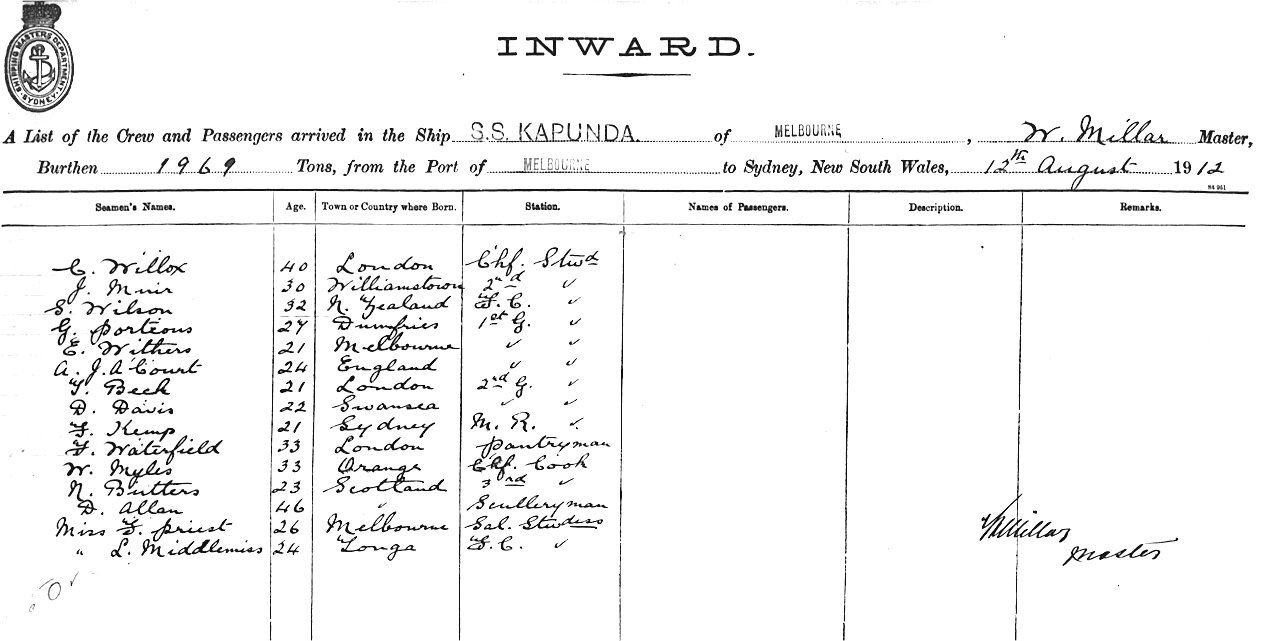 SHIPPING MASTERS DEPARTMENT SYDNEY
INWARD.
A List of the Crew and Passengers arrived in the Ship S.S. KAPUNDA. of MELBOURNE, W. Millar Master,
Burthen 1969 Tons, from the Port of MELBOURNE to Sydney, New South Wales, 12th August 1912
Seamen's Names. Age. Town or Country where Born. Station. Names of Passengers. Description. Remarks.
C. Willox 40 London Chf. Stwd
J. Muir 30 Williamstown 2nd "
S. Wilson 32 N. Zealand F. C. "
G. Porteous 27 Dumfries 1st G. "
E. Withers 21 Melbourne " "
A. J. A'Court 24 England " "
T. Beck 21 London 2nd G. "
D. Davis 22 Swansea " "
F. Kemp 21 Sydney M. R. "
F. Waterfield 33 London Pantryman
W. Myles 33 Orange Chf. Cook
N. Butters 23 Scotland 3rd "
D. Allan 46 " Sculleryman
Miss F. Priest 26 Melbourne Sal. Stwdess
" L. Middlemiss 24 Tonga F. C. "
W Millar
Master